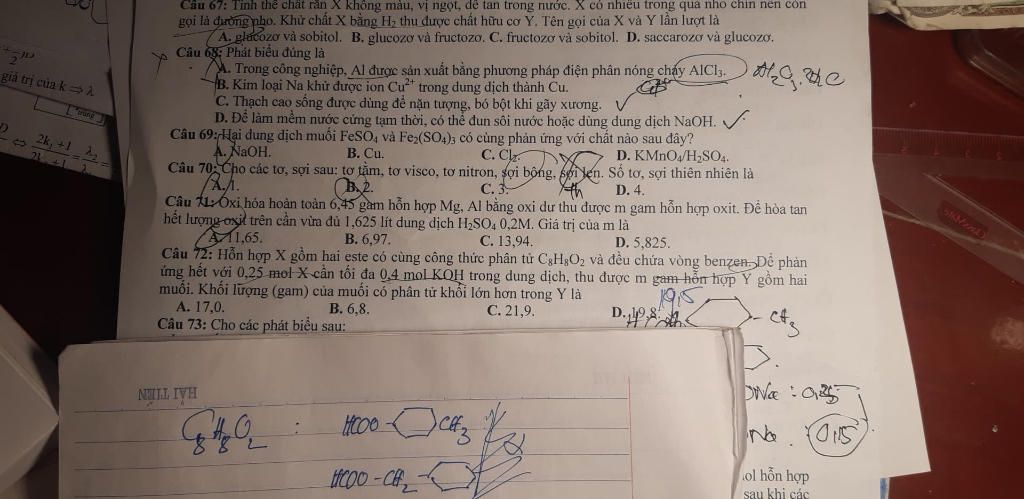 Câu 67: Tinh thể chất rắn X không màu, vị ngọt, dễ tan trong nước. X có nhiều trong quả nho chín nên còn
gọi là đường nho. Khử chất X bằng H₂ thu được chất hữu cơ Y. Tên gọi của X và Y lần lượt là
A. glucozơ và sobitol. B. glucozơ và fructozơ. C. fructozơ và sobitol. D. saccarozơ và glucozơ.
Câu 68: Phát biểu đúng là
A. Trong công nghiệp, Al được sản xuất bằng phương pháp điện phân nóng chảy AlCl₃.
B. Kim loại Na khử được ion Cu²⁺ trong dung dịch thành Cu.
C. Thạch cao sống được dùng để nặn tượng, bó bột khi gãy xương.
D. Để làm mềm nước cứng tạm thời, có thể đun sôi nước hoặc dùng dung dịch NaOH.
Câu 69: Hai dung dịch muối FeSO₄ và Fe₂(SO₄)₃ có cùng phản ứng với chất nào sau đây?
A. NaOH. B. Cu. C. Cl₂. D. KMnO₄/H₂SO₄.
Câu 70: Cho các tơ, sợi sau: tơ tằm, tơ visco, tơ nitron, sợi bông, sợi len. Số tơ, sợi thiên nhiên là
A. 1. B. 2. C. 3. D. 4.
Câu 71: Oxi hóa hoàn toàn 6,45 gam hỗn hợp Mg, Al bằng oxi dư thu được m gam hỗn hợp oxit. Để hòa tan
hết lượng oxit trên cần vừa đủ 1,625 lít dung dịch H₂SO₄ 0,2M. Giá trị của m là
A. 11,65. B. 6,97. C. 13,94. D. 5,825.
Câu 72: Hỗn hợp X gồm hai este có cùng công thức phân tử C₈H₈O₂ và đều chứa vòng benzen. Để phản
ứng hết với 0,25 mol X cần tối đa 0,4 mol KOH trong dung dịch, thu được m gam hỗn hợp Y gồm hai
muối. Khối lượng (gam) của muối có phân tử khối lớn hơn trong Y là
19,5
A. 17,0. B. 6,8. C. 21,9. D. 19,8.
CH₃
Câu 73: Cho các phát biểu sau:
giá trị của k ⇒ λ
HẢI TIẾN
C₈H₈O₂ : HCOO - CH₃
HCOO - CH₂ -
0,15
ol hỗn hợp
sau khi các